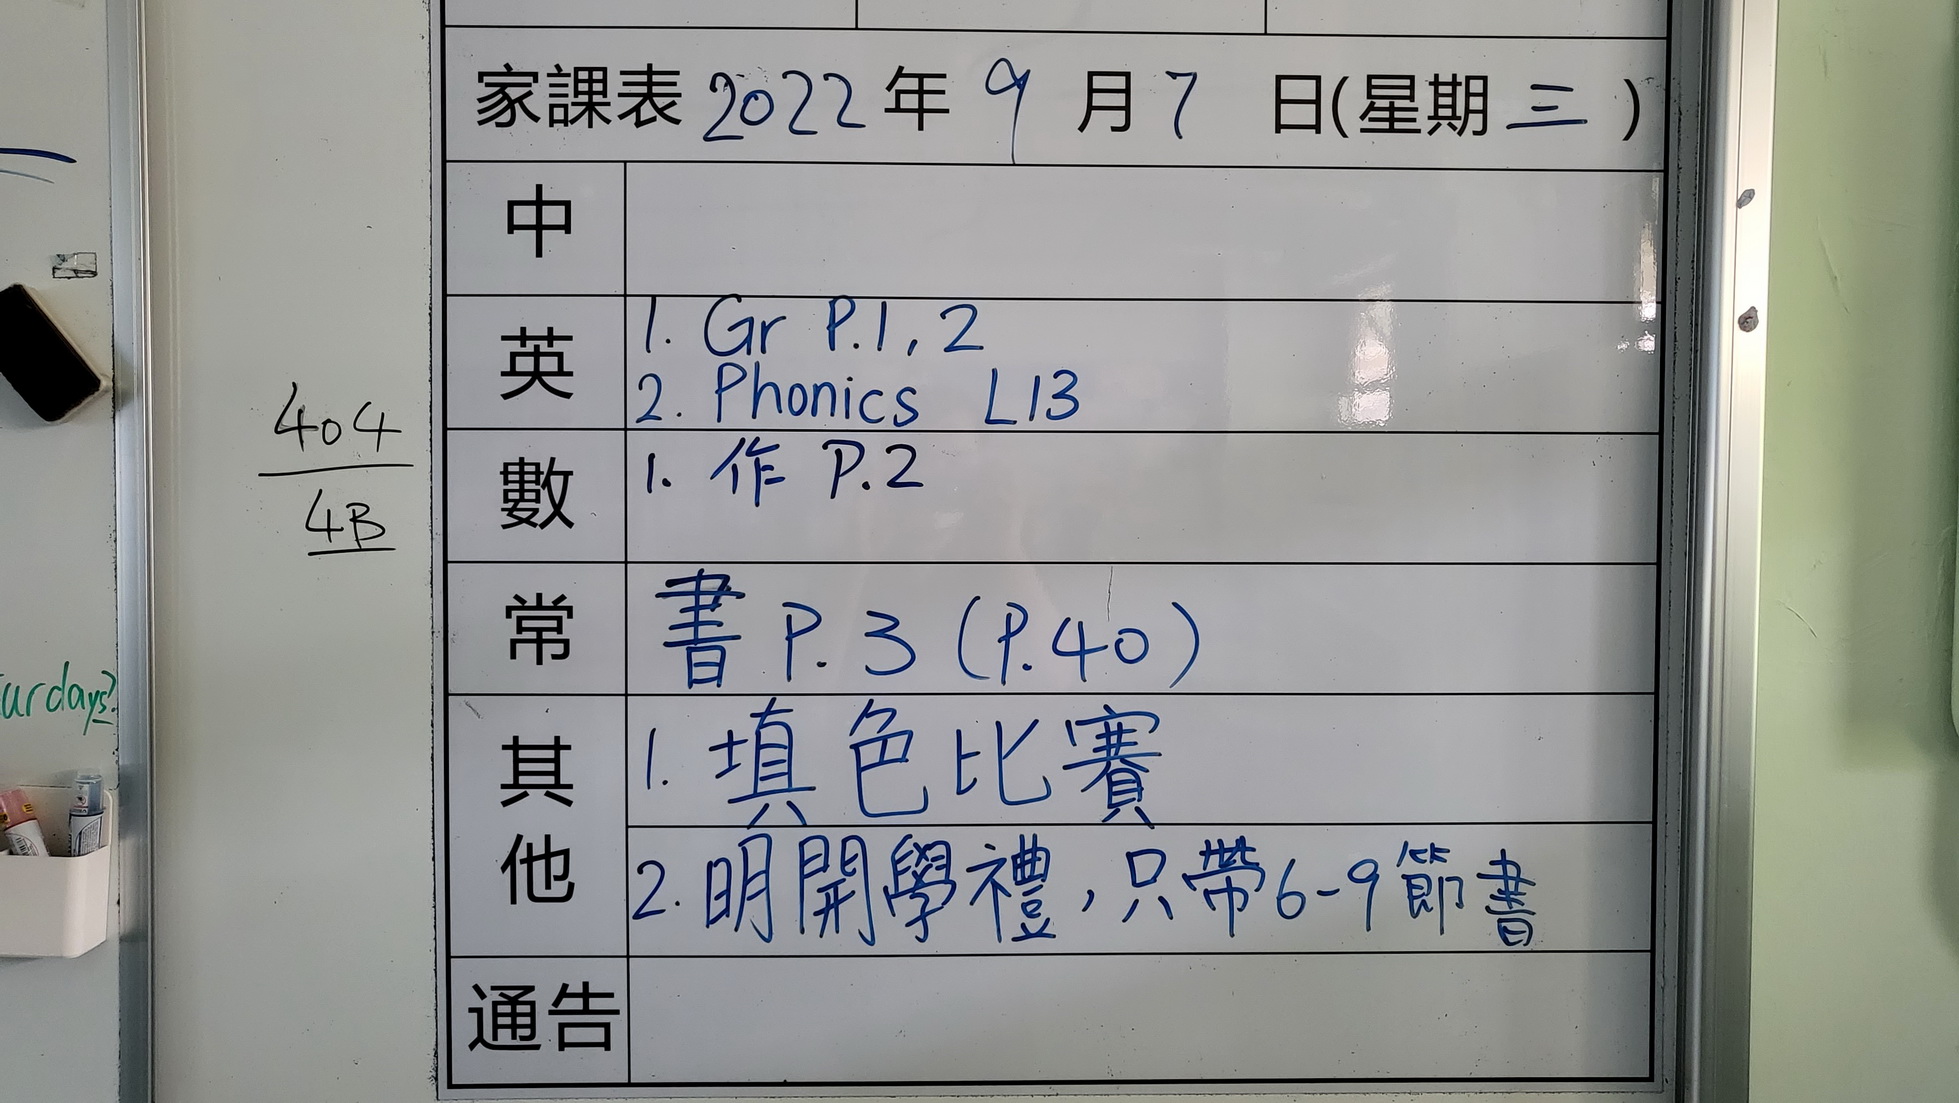 家課表 2022 年 9 月 7 日(星期 三 )
中
英
1. Gr P.1, 2
2. Phonics L13
數
1. 作 P.2
常
書 P.3 (P.40)
其他
1. 填色比賽
2. 明開學禮，只帶6-9節書
通告
404
4B
urdays?